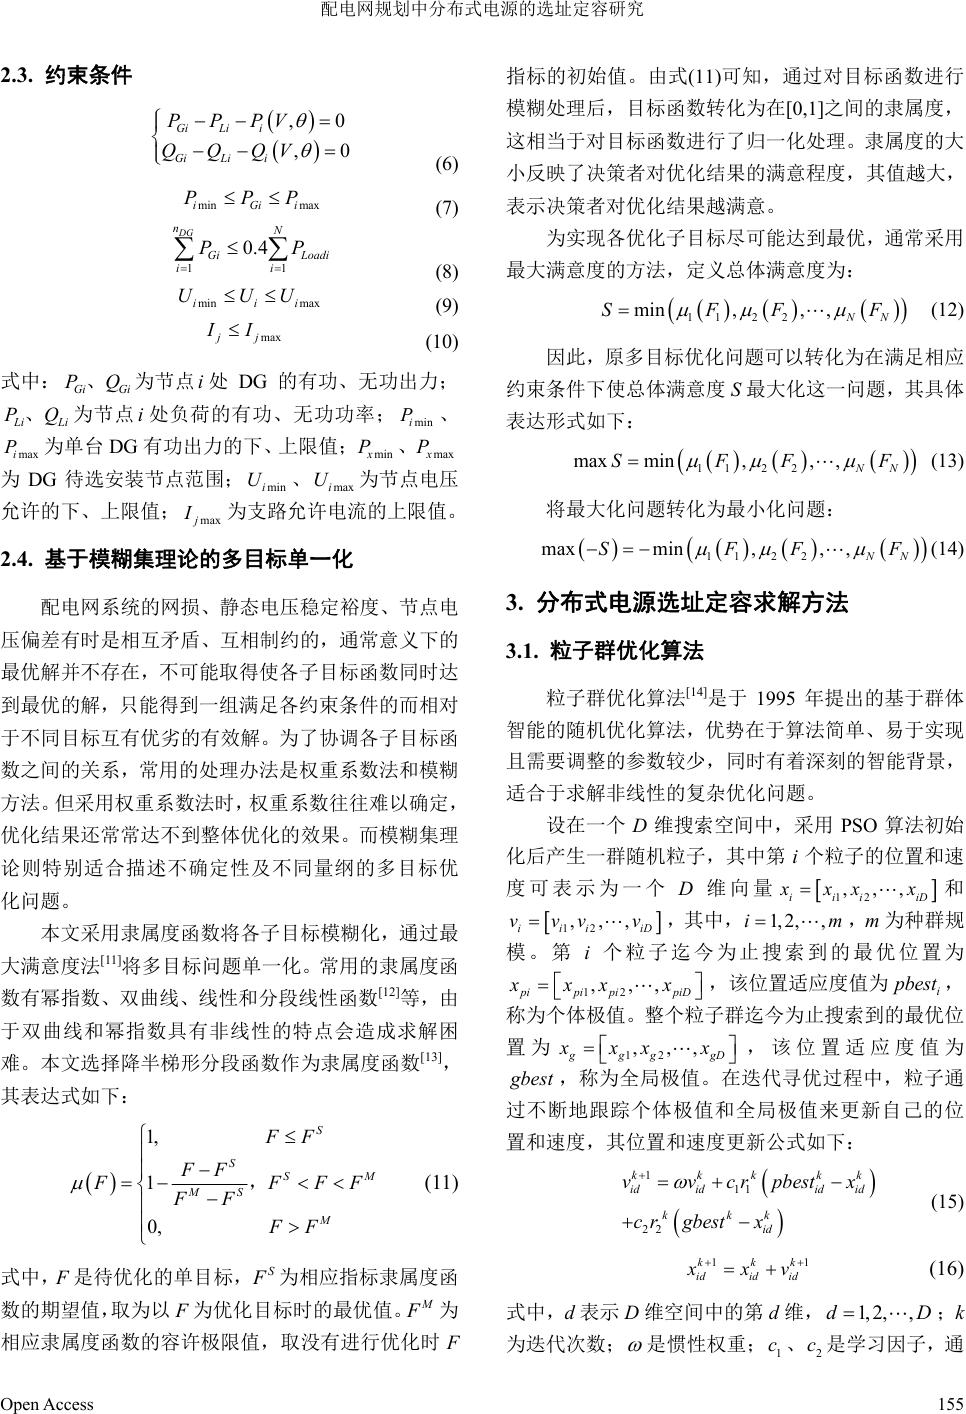 配电网规划中分布式电源的选址定容研究
2.3. 约束条件
{ P_{Gi} − P_{Li} − P_i(V,θ) = 0
Q_{Gi} − Q_{Li} − Q_i(V,θ) = 0 (6)
P_{i min} ≤ P_{Gi} ≤ P_{i max} (7)
∑_{i=1}^{n_{DG}} P_{Gi} ≤ 0.4 ∑_{i=1}^{N} P_{Loadi} (8)
U_{i min} ≤ U_i ≤ U_{i max} (9)
I_j ≤ I_{j max} (10)
式中：P_{Gi}、Q_{Gi} 为节点 i 处 DG 的有功、无功出力；
P_{Li}、Q_{Li} 为节点 i 处负荷的有功、无功功率；P_{i min} 、
P_{i max} 为单台 DG 有功出力的下、上限值；P_{x min} 、P_{x max}
为 DG 待选安装节点范围；U_{i min} 、U_{i max} 为节点电压
允许的下、上限值；I_{j max} 为支路允许电流的上限值。
2.4. 基于模糊集理论的多目标单一化
配电网系统的网损、静态电压稳定裕度、节点电
压偏差有时是相互矛盾、互相制约的，通常意义下的
最优解并不存在，不可能取得使各子目标函数同时达
到最优的解，只能得到一组满足各约束条件的而相对
于不同目标互有优劣的有效解。为了协调各子目标函
数之间的关系，常用的处理办法是权重系数法和模糊
方法。但采用权重系数法时，权重系数往往难以确定，
优化结果还常常达不到整体优化的效果。而模糊集理
论则特别适合描述不确定性及不同量纲的多目标优
化问题。
本文采用隶属度函数将各子目标模糊化，通过最
大满意度法[11]将多目标问题单一化。常用的隶属度函
数有幂指数、双曲线、线性和分段线性函数[12]等，由
于双曲线和幂指数具有非线性的特点会造成求解困
难。本文选择降半梯形分段函数作为隶属度函数[13]，
其表达式如下：
μ(F) = { 1, F ≤ F^S
1 − (F − F^S)/(F^M − F^S)， F^S < F < F^M (11)
0, F > F^M
式中，F 是待优化的单目标，F^S 为相应指标隶属度函
数的期望值，取为以 F 为优化目标时的最优值。F^M 为
相应隶属度函数的容许极限值，取没有进行优化时 F
指标的初始值。由式(11)可知，通过对目标函数进行
模糊处理后，目标函数转化为在[0,1]之间的隶属度，
这相当于对目标函数进行了归一化处理。隶属度的大
小反映了决策者对优化结果的满意程度，其值越大，
表示决策者对优化结果越满意。
为实现各优化子目标尽可能达到最优，通常采用
最大满意度的方法，定义总体满意度为：
S = min(μ_1(F_1), μ_2(F_2), ⋯, μ_N(F_N)) (12)
因此，原多目标优化问题可以转化为在满足相应
约束条件下使总体满意度 S 最大化这一问题，其具体
表达形式如下：
max S = min(μ_1(F_1), μ_2(F_2), ⋯, μ_N(F_N)) (13)
将最大化问题转化为最小化问题：
max(−S) = −min(μ_1(F_1), μ_2(F_2), ⋯, μ_N(F_N)) (14)
3. 分布式电源选址定容求解方法
3.1. 粒子群优化算法
粒子群优化算法[14]是于 1995 年提出的基于群体
智能的随机优化算法，优势在于算法简单、易于实现
且需要调整的参数较少，同时有着深刻的智能背景，
适合于求解非线性的复杂优化问题。
设在一个 D 维搜索空间中，采用 PSO 算法初始
化后产生一群随机粒子，其中第 i 个粒子的位置和速
度可表示为一个 D 维向量 x_i = [x_{i1}, x_{i2}, ⋯, x_{iD}] 和
v_i = [v_{i1}, v_{i2}, ⋯, v_{iD}]，其中，i = 1,2, ⋯, m，m 为种群规
模。第 i 个粒子迄今为止搜索到的最优位置为
x_{pi} = [x_{pi1}, x_{pi2}, ⋯, x_{piD}]，该位置适应度值为 pbest_i，
称为个体极值。整个粒子群迄今为止搜索到的最优位
置为 x_g = [x_{g1}, x_{g2}, ⋯, x_{gD}]，该位置适应度值为
gbest，称为全局极值。在迭代寻优过程中，粒子通
过不断地跟踪个体极值和全局极值来更新自己的位
置和速度，其位置和速度更新公式如下：
v_{id}^{k+1} = ωv_{id}^k + c_1 r_1^k (pbest_{id}^k − x_{id}^k)
+ c_2 r_2^k (gbest^k − x_{id}^k) (15)
x_{id}^{k+1} = x_{id}^k + v_{id}^{k+1} (16)
式中，d 表示 D 维空间中的第 d 维，d = 1,2, ⋯, D；k
为迭代次数；ω 是惯性权重；c_1 、c_2 是学习因子，通
Open Access 155